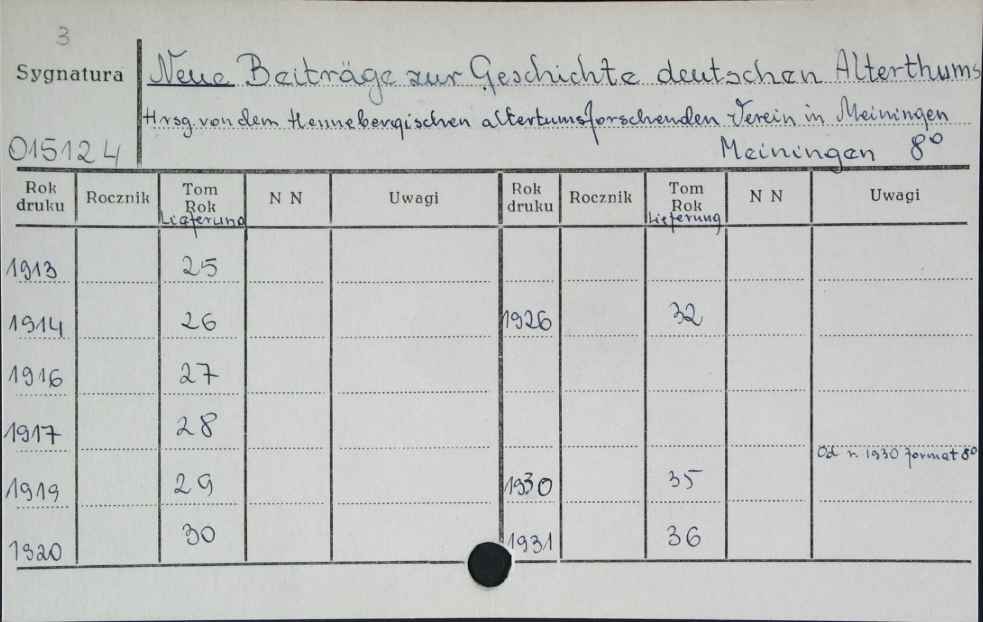 3
Sygnatura
Neue Beiträge zur Geschichte deutschen Alterthums
Hrsg. von dem Hennebergischen altertumsforschenden Verein in Meiningen
015124
Meiningen 8°
Rok druku Rocznik Tom Rok Lieferung N N Uwagi Rok druku Rocznik Tom Rok Lieferung N N Uwagi
1913 25
1914 26 1926 32
1916 27
1917 28
Od r. 1930 format 8°
1919 29 1930 35
1920 30 1931 36